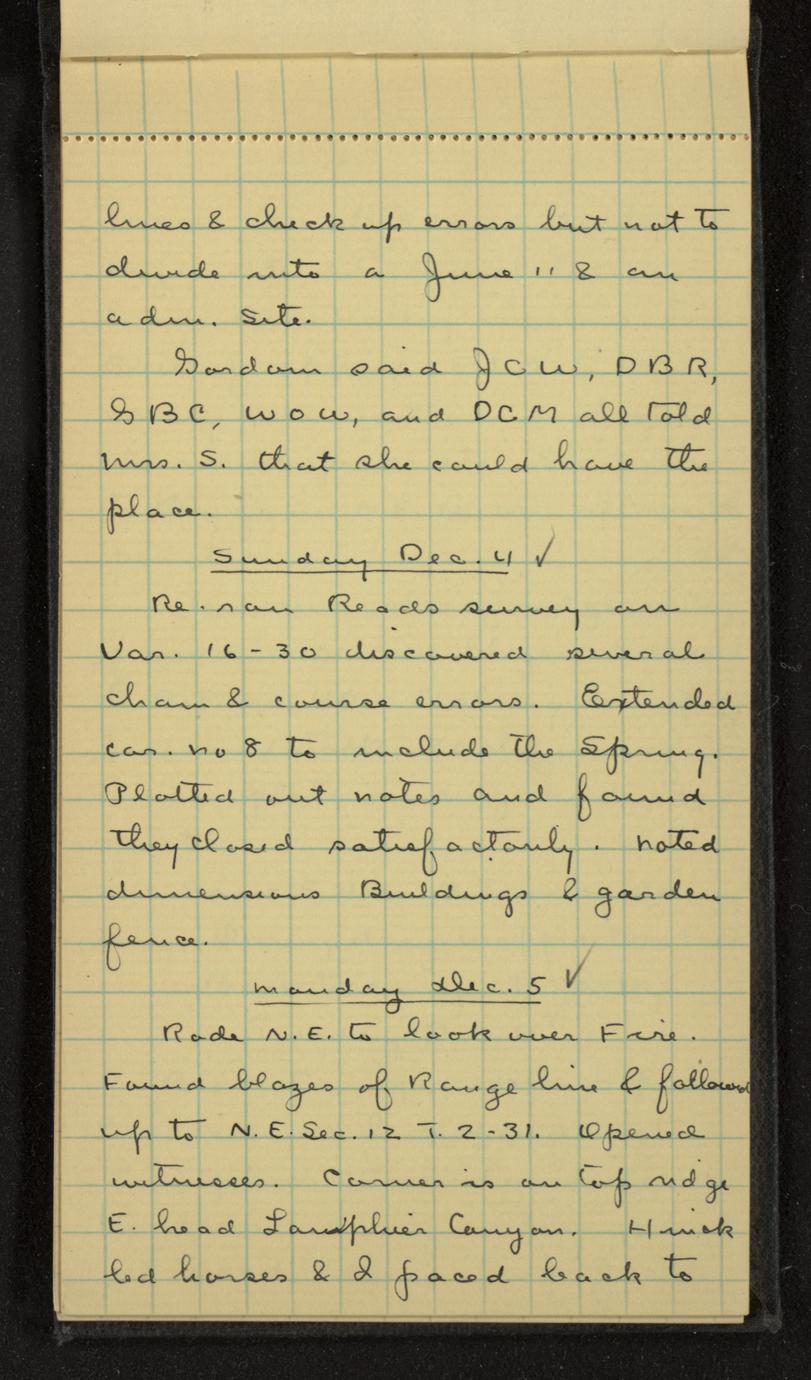 lines & check up errors but not to
divide into a June 11 & an
adm. site.
Gordon said JCW, DBR,
GBC, WOW, and DCM all told
Mrs. S. that she could have the
place.
Sunday Dec. 4 ✓
Re-ran Reads survey on
Var. 16-30 discovered several
chain & course errors. Extended
cor. no 8 to include the Spring.
Plotted out notes and found
they closed satisfactorily. Noted
dimensions Buildings & garden
fence.
Monday Dec. 5 ✓
Rode N.E. to look over Fire.
Found blazes of Range line & followed
up to N.E. Sec. 12 T. 2-31. Opened
witnesses. Corner is on top ridge
E. head Lanphier Canyon. Hinck
led horses & I paced back to